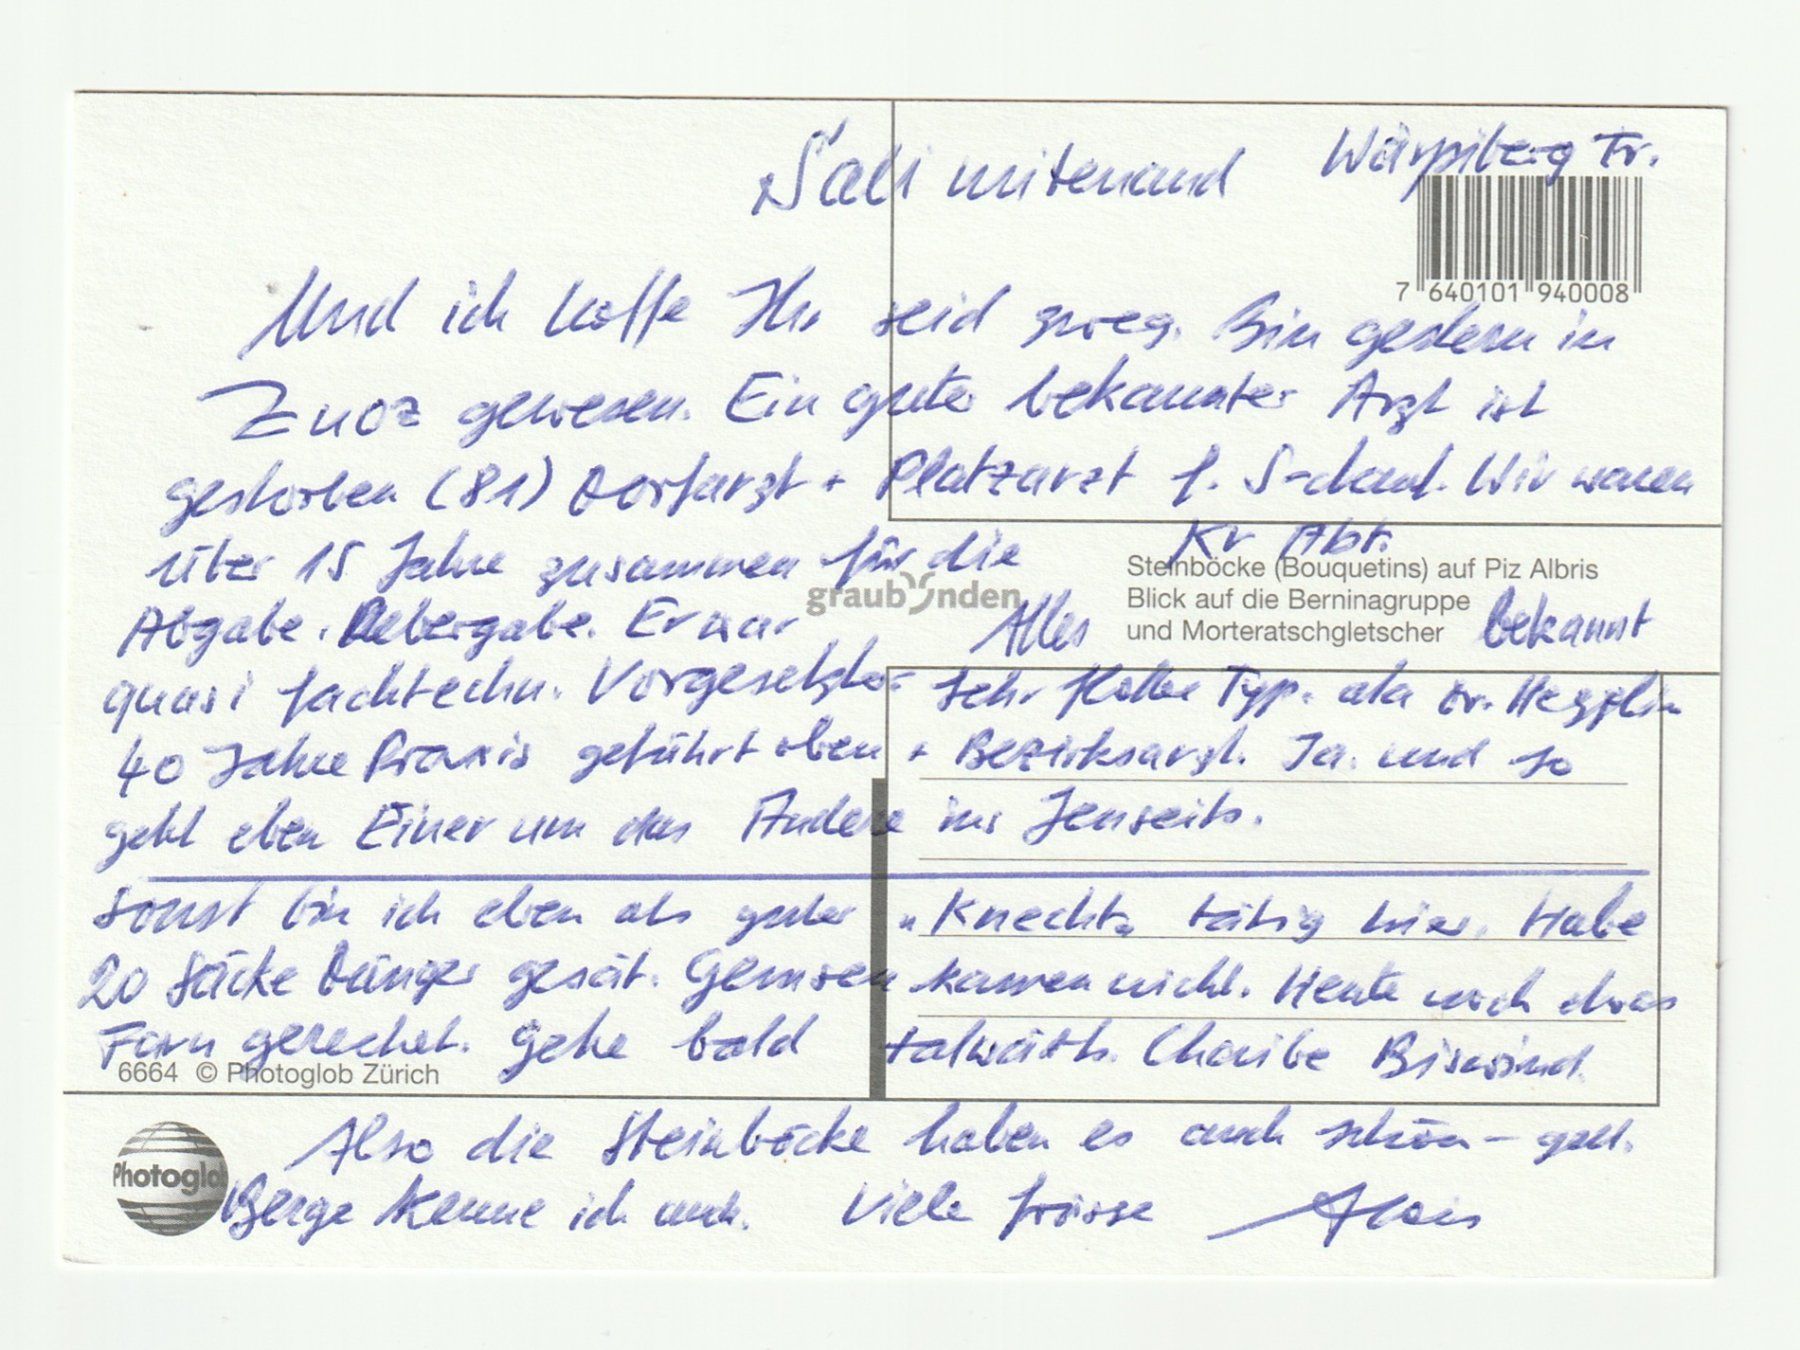 Sali mitenand Fr.
7 640101 940008
Und ich hoffe Ihr seid zweg. Bin gestern in
Zuoz gewesen. Ein guter bekannter Arzt ist
gestorben (81) Dorfarzt + Platzarzt f. Wir waren
über 15 Jahre zusammen für die Kr. Abt.
graubünden
Steinböcke (Bouquetins) auf Piz Albris
Blick auf die Berninagruppe
und Morteratschgletscher
Abgabe. Uebergabe. Er war Alles bekannt
quasi fachtechn. Vorgesetzter sehr flotter Typ.
40 Jahre Praxis geführt oben + Bezirksarzt. Ja. und so
geht eben Einer um das Andere ins Jenseits.
Sonst bin ich eben als guter "Knecht" tätig hier. Habe
20 Säcke Dünger gesät. Gemsen kamen nicht. Heute noch etwas
Farn gerechet. Gehe bald talwärts. Chaibe Biswind.
6664 © Photoglob Zürich
Also die Steinböcke haben es auch schön - gell.
Photoglob
Berge kenne ich auch. Viele Grüsse Alois